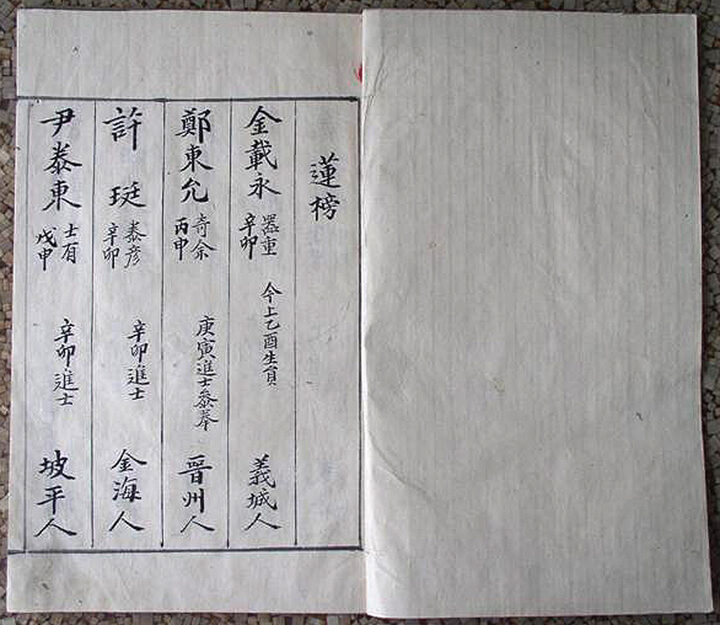 蓮榜
金載永 器重 辛卯 今上乙酉生員 義城人
鄭東允 奇余 丙申 庚寅進士參奉 晋州人
許珽 泰彦 辛卯 辛卯進士 金海人
尹泰東 士有 戊申 辛卯進士 坡平人